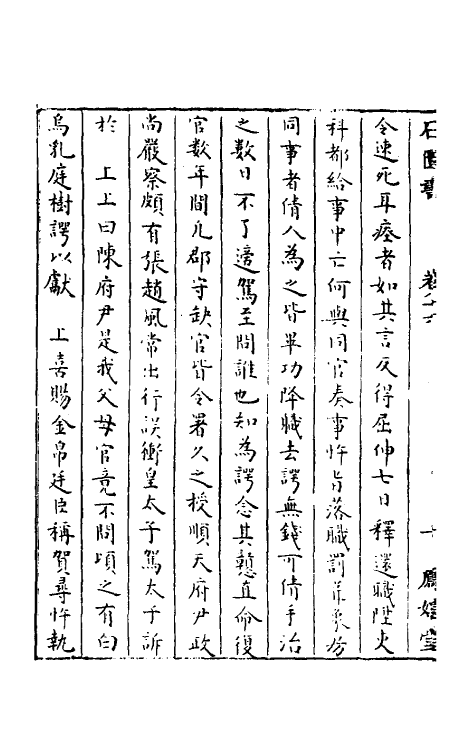 石匱書　卷六六　十　鳳嬉堂
令速死耳瘞者如其言反得屈伸七日釋還職陞火
科都給事中亡何與同官奏事忤旨落職罰葺象房
同事者倩人為之皆畢功降職去諤無錢可倩手治
之數日不了適駕至問誰也知為諤念其戇直命復
官數年間凡郡守缺官皆令署久之授順天府尹政
尚嚴察頗有張趙風常出行誤衝皇太子駕太子訴
於　上上曰陳府尹是我父母官竟不問頃之有白
烏乳庭樹諤以獻　上喜賜金帛廷臣稱賀尋忤執